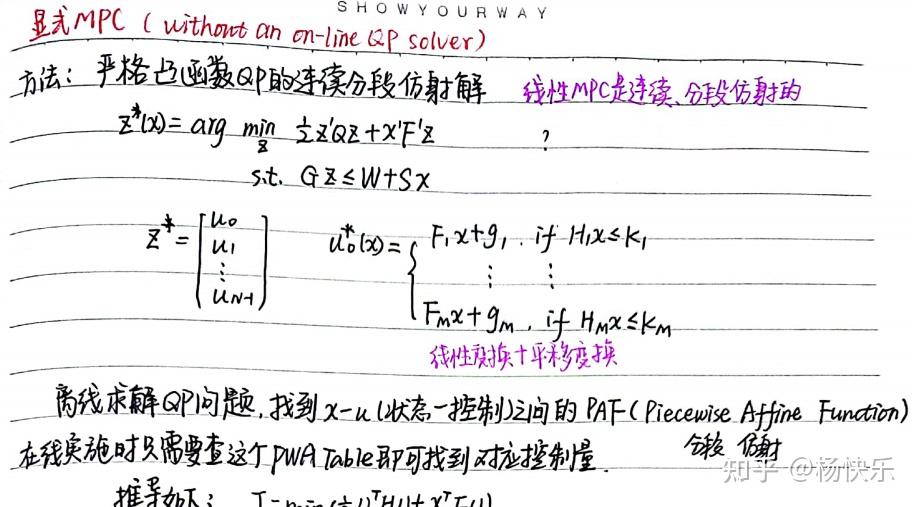 SHOWYOURWAY
显式MPC (without an on-line QP solver)
方法: 严格凸函数QP的连续分段仿射解 线性MPC是连续、分段仿射的
z*(x) = arg min_z ½z'Qz + x'F'z ?
s.t. Gz ≤ W + Sx
z* = [u₀ u₁ ⋮ u_N-1] u₀*(x) = { F₁x + g₁, if H₁x ≤ K₁
⋮ ⋮
F_M x + g_M, if H_M x ≤ K_M
线性变换+平移变换
离线求解QP问题, 找到x-u(状态-控制)之间的PAF(Piecewise Affine Function)
分段 仿射
在线实施时只需要查这个PWA Table即可找到对应控制量.
知乎 @杨快乐
推导如下: J = min (½UᵀHU + xᵀFU)